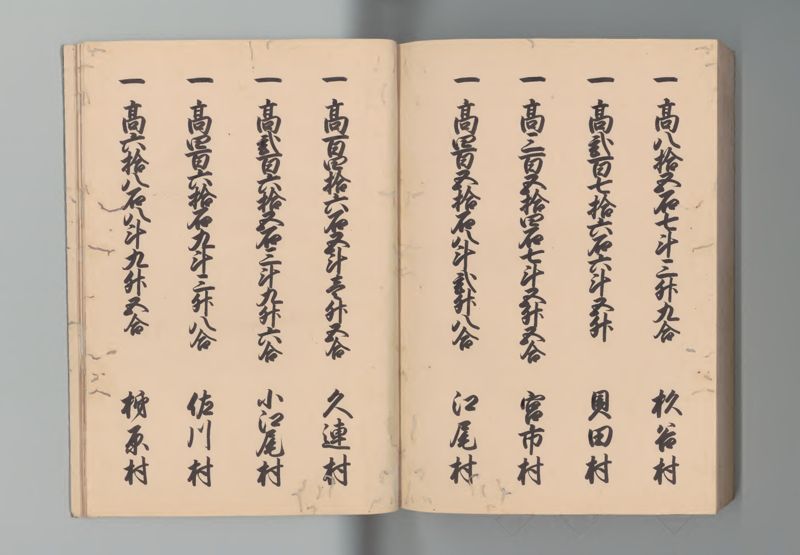 一 高八拾五石七斗三升九合 杦谷村
一 高弐百七拾六石六斗五升 貝田村
一 高三百五拾四石七斗五升五合 宮市村
一 高四百五拾石八斗弐升八合 江尾村
一 高百四拾六石五斗壱升五合 久連村
一 高弐百六拾五石三斗九升六合 小江尾村
一 高四百六拾石九斗三升八合 佐川村
一 高六拾八石八斗九升五合 栁原村